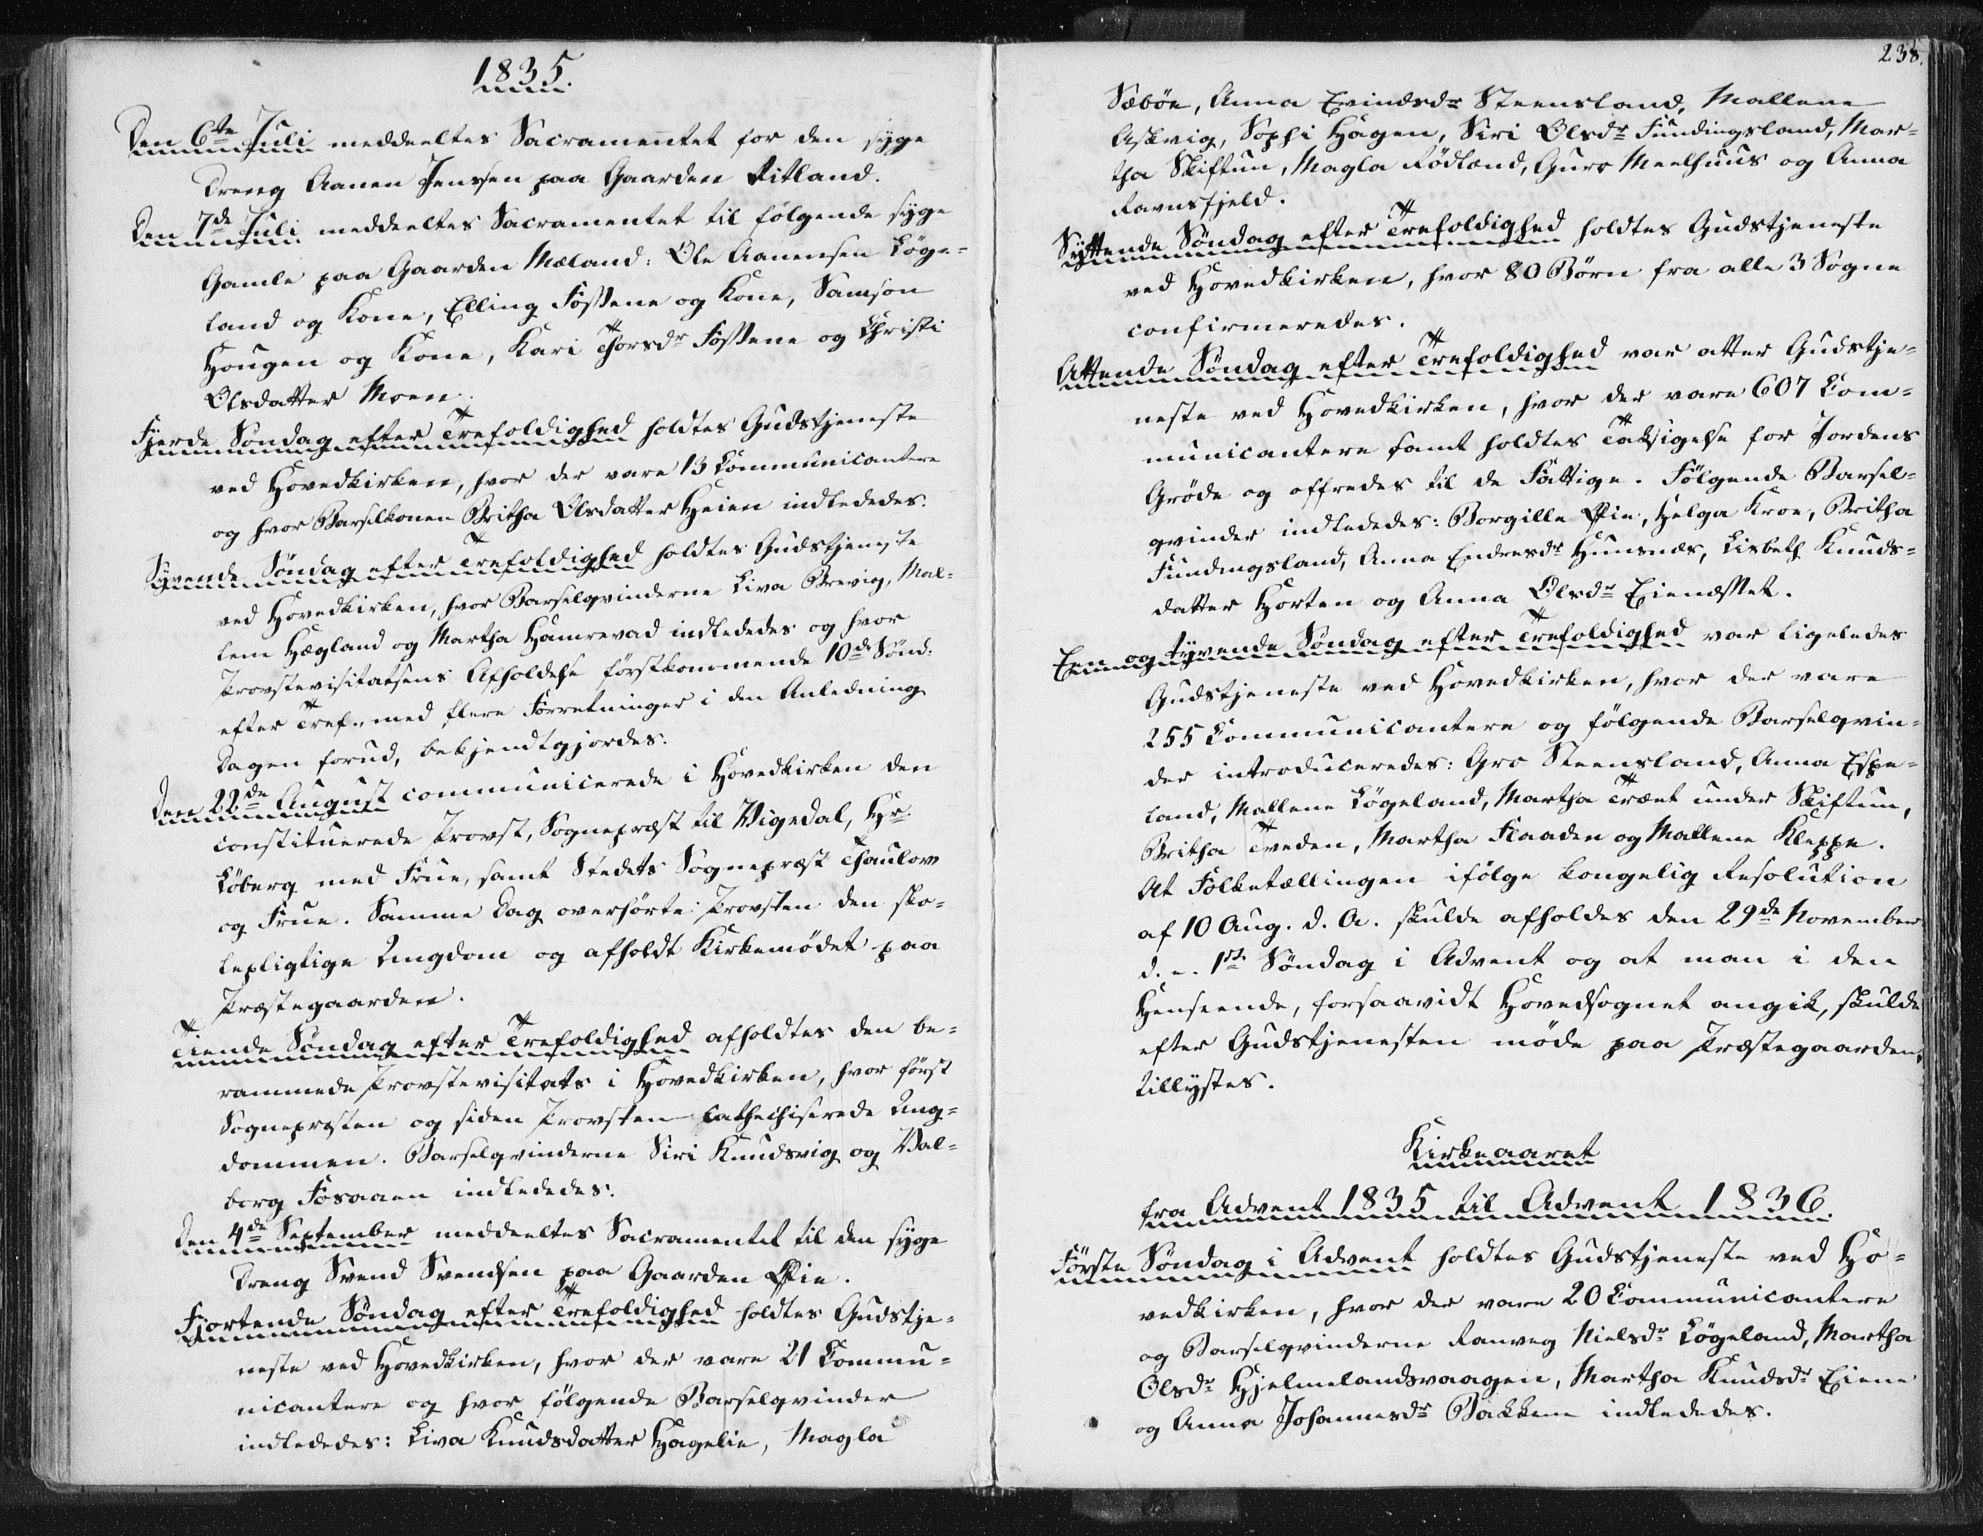 1835.
Den 6te Juli meddeeltes Sacramentet for den syge
Dreng Aanen Jenssen paa Gaarden Ritland.
Den 7de Juli meddeeltes Sacramentet til følgende syge
Gamle paa Gaarden Mæland: Ole Aanensen Løge-
land og Kone, Elling Fossene og Kone, Samson
Hougen og Kone, Kari Thorsdr Fossene og Christi
Olsdatter Moen.
Fjerde Søndag efter Trefoldighed holdtes Gudstjeneste
ved Hovedkirken, hvor der vare 13 Communicantere
og hvor Barselkonen Britha Olsdatter Heien indlededes.
Syvende Søndag efter Trefoldighed holdtes Gudstjeneste
ved Hovedkirken, hvor Barselqvinderne Liva Brevig, Mal-
lene Hægland og Martha Hamrevad indlededes og hvor
Provstevisitatsens Afholdelse førstkommende 10de Sønd:
efter Tref. med flere Forretninger i den Anledning
Dagen forud, bekjendtgjordes.
Den 22de August communicerede i Hovedkirken den
constituerede Provst, Sognepræst til Vigedal, Hr
Løberg med Frue, samt Stedets Sognepræst Thaulow
og Frue. Samme Dag overhørte Provsten den sko-
lepligtige Ungdom og afholdt Kirkemødet paa
Præstegaarden.
Tiende Søndag efter Trefoldighed afholdtes den be-
rammede Provstevisitats i Hovedkirken, hvor først
Sognepræsten og siden Provsten Cathechiserede Ung-
dommen. Barselqvinderne Siri Knudsvig og Val-
borg Fosaaen indlededes.
Den 4de September meddeeltes Sacramentet til den syge
Dreng Svend Svendsen paa Gaarden Øie.
Fjortende Søndag efter Trefoldighed holdtes Gudstje-
neste ved Hovedkirken, hvor der vare 21 Commu-
nicantere og hvor følgende Barselqvinder
indlededes: Liva Knudsdatter Hagelie, Magla
238.
Sæbøe, Anna Evindsdr Steensland, Mallene
Askvig, Sophi Hagen, Siri Olsdr Fundingsland, Mar-
tha Skiftun, Magla Rødland, Guro Meelhuus og Anna
Ravnsfjeld.
Syttende Søndag efter Trefoldighed holdtes Gudstjeneste
ved Hovedkirken, hvor 80 Børn fra alle 3 Sogne
confirmeredes.
Attende Søndag efter Trefoldighed var atter Gudstje-
neste ved Hovedkirken, hvor der vare 607 Com-
municantere samt holdtes Taksigelse for Jordens
Grøde og offredes til de Fattige. Følgende Barsel-
qvinder indlededes: Borgille Øie, Helga Kroe, Britha
Fundingsland, Anna Endresdr Hunsnes, Lisbeth Knuds-
datter Horten og Anna Olsdr Eiendstet.
Een og tyvende Søndag efter Trefoldighed var ligeledes
Gudstjeneste ved Hovedkirken, hvor der vare
255 Communicantere og følgende Barselqvin-
der introduceredes: Gro Steensland, Anna Espe-
land, Mallene Løgeland, Martha Træet under Skiftun,
Britha Tveden, Martha Flaaden og Mallene Kleppe.
At Folketællingen ifølge kongelig Resolution
af 10 Aug. d. A. skulde afholdes den 29de November
d. e. 1ste Søndag i Advent og at man i den
Henseende, forsaavidt Hovedsognet angik, skulde
efter Gudstjenesten møde paa Præstegaarden,
tillystes.
Kirkeaaret
fra Advent 1835 til Advent 1836.
Første Søndag i Advent holdtes Gudstjeneste ved Ho-
vedkirken, hvor der vare 20 Communicantere
og Barselqvinderne Ranveg Nielsdr Løgeland, Martha
Olsdr Hjelmelandsvaagen, Martha Knudsdr Eiene
og Anna Johannesdr Bakken indlededes.